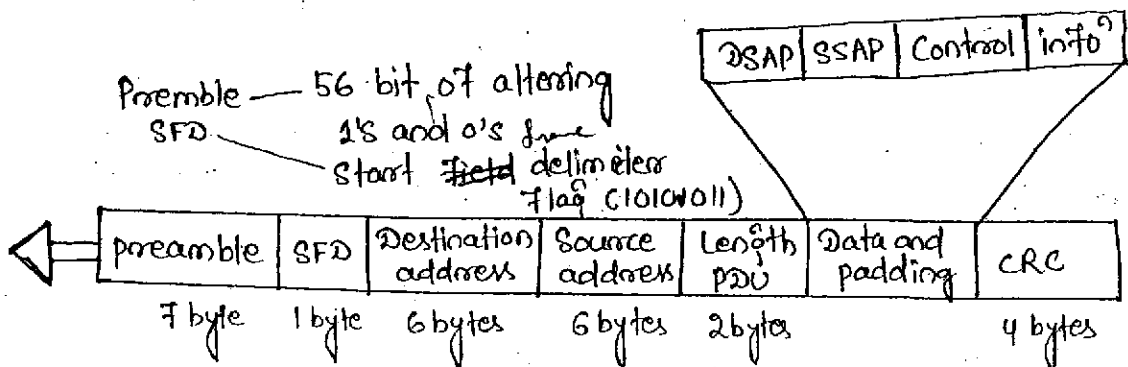 DSAP SSAP Control info^n
Premble — 56 bit of altering
SFD 1's and 0's frame
Start ~~field~~ delimeter
flag (10101011)
preamble SFD Destination address Source address Length of PDU Data and padding CRC
7 byte 1 byte 6 bytes 6 bytes 2 bytes 4 bytes